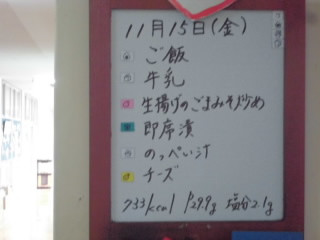 11月15日(金)
ご飯
牛乳
生揚げのごまみそ炒め
即席漬
のっぺい汁
チーズ
733kcal 129.9g 塩分2.1g